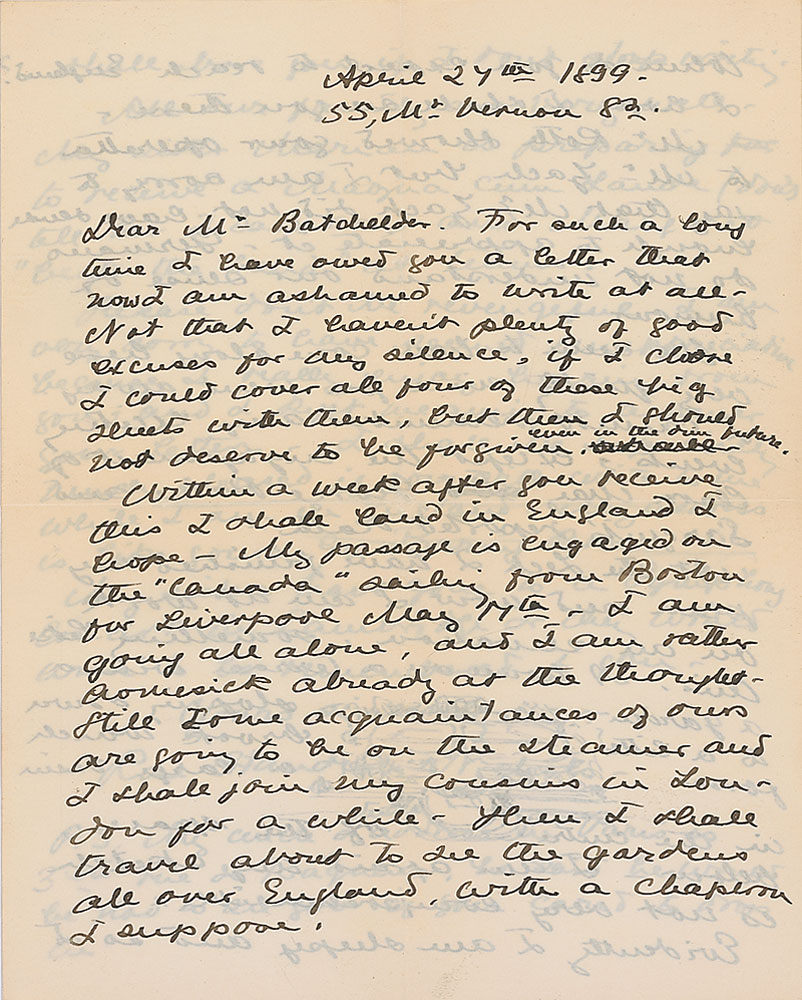 April 27th 1899.
55, Mt Vernon St.
Dear Mr Batchelder. For such a long
time I have owed you a letter that
now I am ashamed to write at all-
Not that I haven't plenty of good
excuses for my silence, if I chose
I could cover all four of these big
sheets with them, but then I should
not deserve to be forgiven, even in the dim future.
Within a week after you receive
this I shall land in England I
hope - My passage is engaged on
the "Canada" sailing from Boston
for Liverpool May 17th - I am
going all alone, and I am rather
homesick already at the thought-
Still some acquaintances of ours
are going to be on the steamer and
I shall join my cousins in Lon-
don for a while - Then I shall
travel about to see the gardens
all over England, with a chaperon
I suppose.